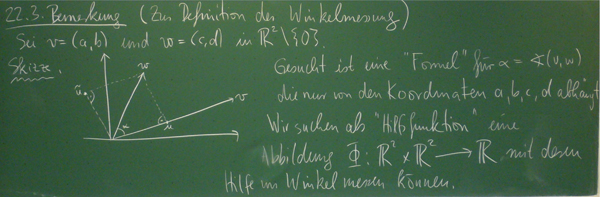 22.3. Bemerkung (Zur Definition der Winkelmessung)
Sei v = (a,b) und w = (c,d) in ℝ² \ {0}.
Skizze.
ũ
w
v
α
u
Gesucht ist eine "Formel" für α = ∡(v,w)
die nur von den Koordinaten a,b,c,d abhängt
Wir suchen als "Hilfsfunktion" eine
Abbildung Φ: ℝ² × ℝ² ⟶ ℝ mit deren
Hilfe wir Winkel messen können.